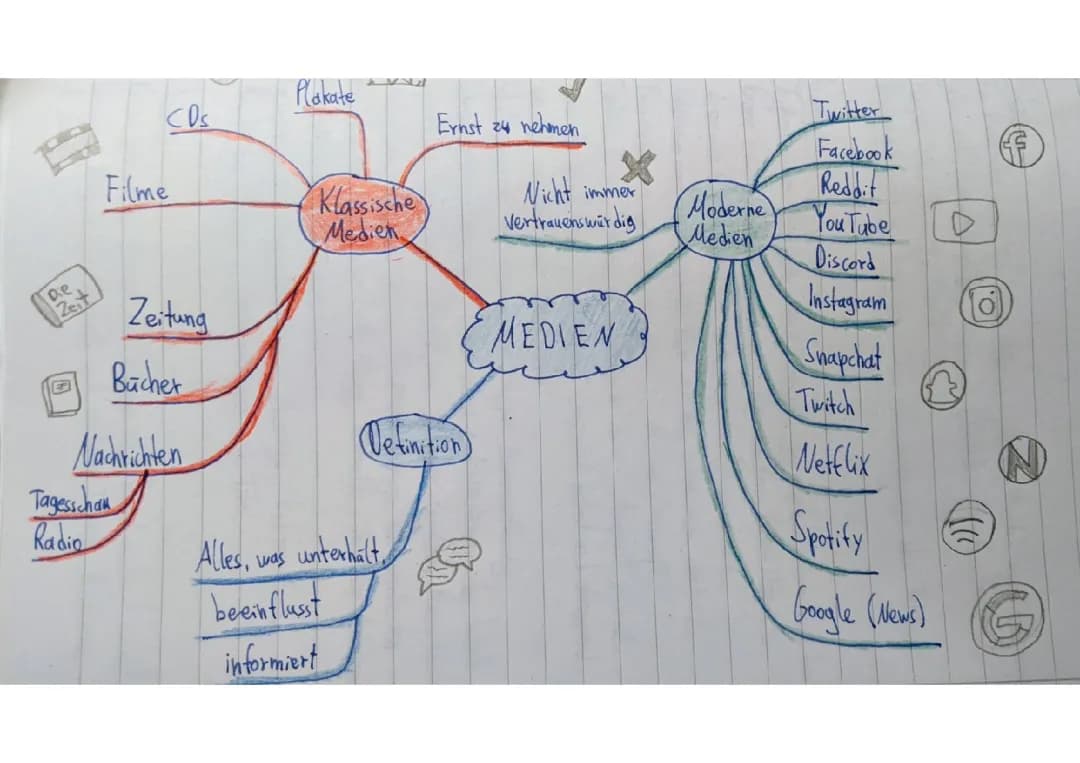 MEDIEN
Klassische
Medien
Plakate
CDs
Filme
Ernst zu nehmen
Zeitung
Bücher
Nachrichten
Tagesschau
Radio
Die
Zeit
Definition
Alles, was unterhält,
beeinflusst
informiert
Moderne
Medien
Nicht immer
vertrauenswürdig
Twitter
Facebook
Reddit
YouTube
Discord
Instagram
Snapchat
Twitch
Netflix
Spotify
Google (News)
f
N
G